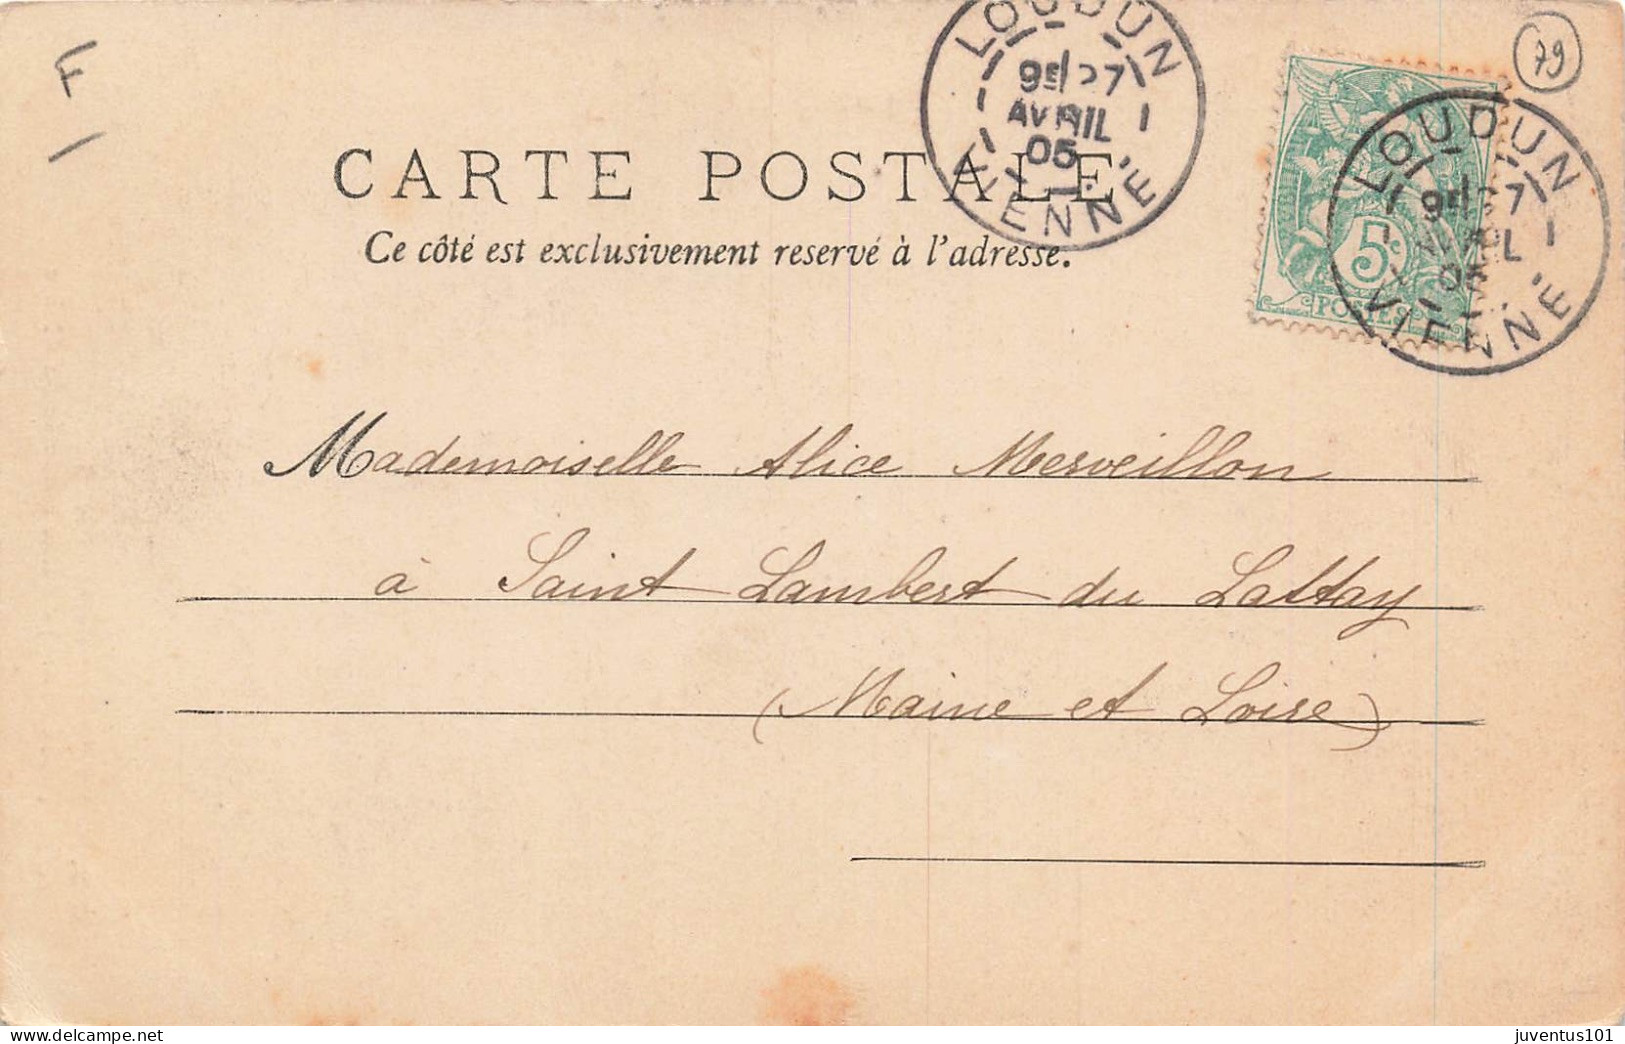 F
79
LOUDUN
9E 27
AVRIL
05
VIENNE
LOUDUN
9E 27
AVRIL
05
VIENNE
5c
POSTES
CARTE POSTALE
Ce côté est exclusivement reservé à l'adresse.
Mademoiselle Alice Merveillon
à Saint Lambert du Lattay
(Maine et Loire)
delcampe.net
juventus101